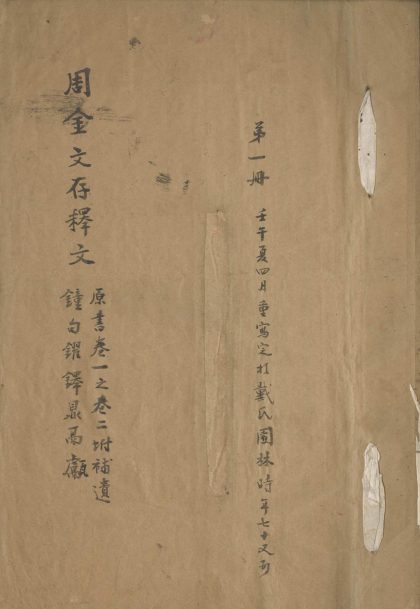 第一冊 壬午夏四月重寫定於戴氏園林時年七十又
原書卷一之卷二坿補遺
鐘句鑃鐸鼎鬲甗
周金文存釋文